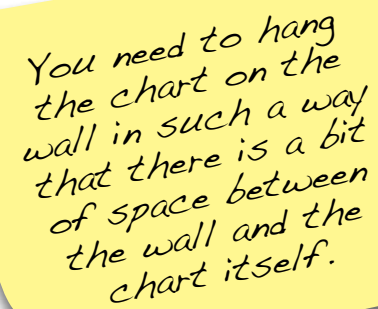 You need to hang
the chart on the
wall in such a way
that there is a bit
of space between
the wall and the
chart itself.